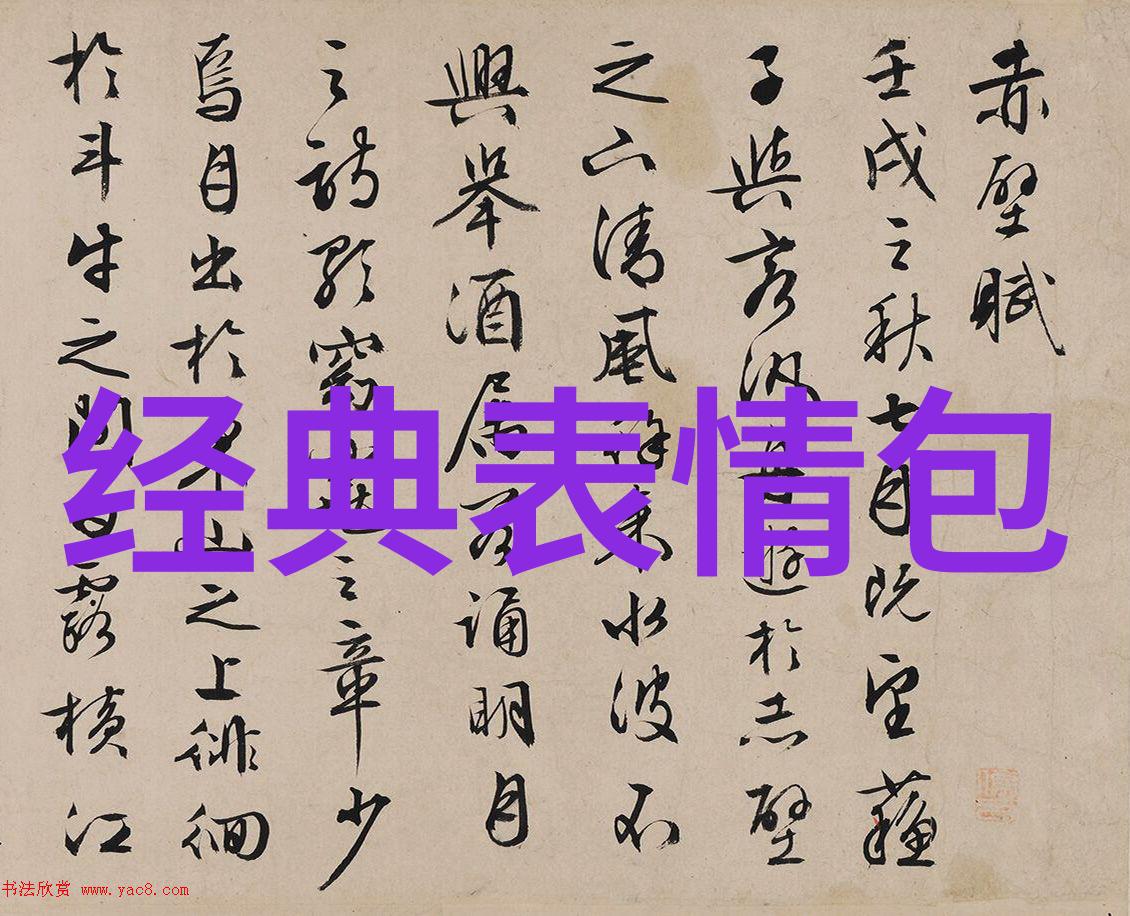 赤壁賦
壬戌之秋七月既望蘇
子與客汎舟遊於赤壁
之下清風徐来水波不
興舉酒屬客誦明月
之詩歌窈窕之章少
焉月出於東山之上徘徊
於斗牛之間白露横江
经典表情包
书法欣赏 www.yac8.com